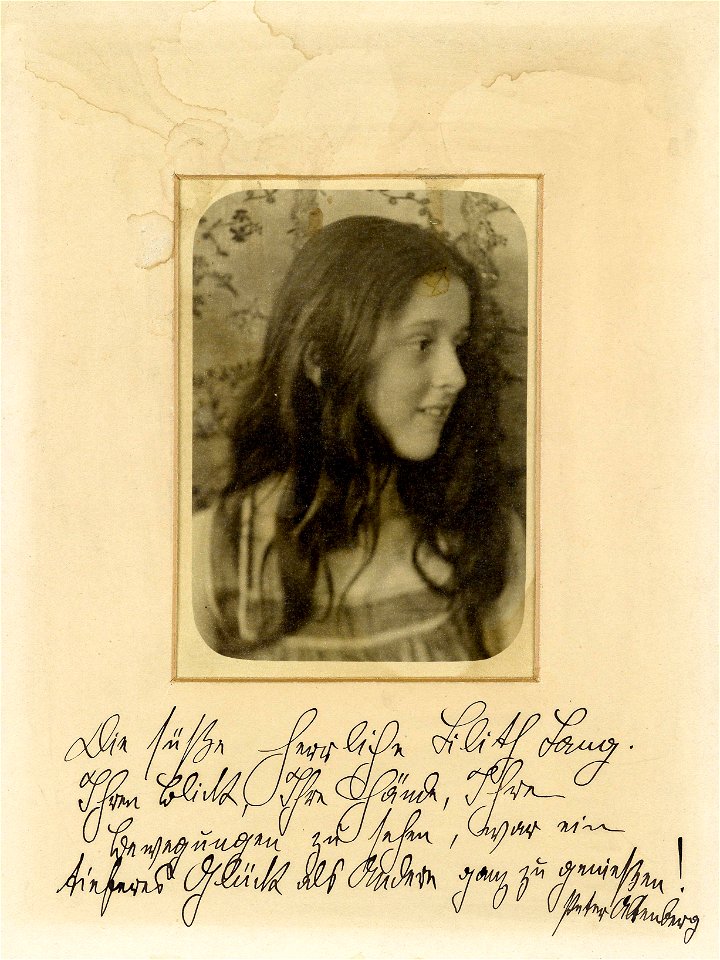 Die süße herrliche Lilith Lang.
Ihren Blick, Ihre Hände, Ihre
Bewegungen zu sehen, war ein
tieferes Glück als Andere ganz zu genießen!
Peter Altenberg